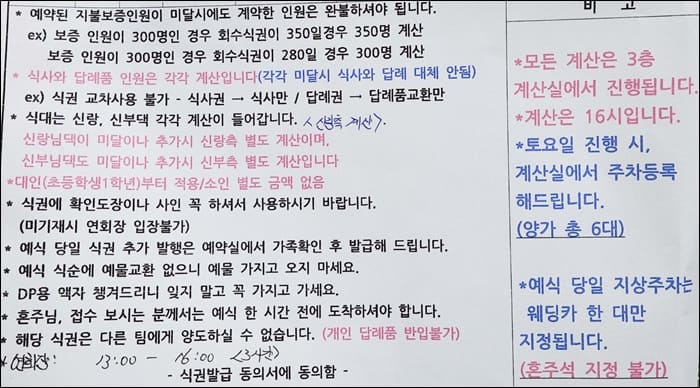 비 고
* 예약된 지불보증인원이 미달시에도 계약한 인원은 완불하셔야 됩니다.
ex) 보증 인원이 300명인 경우 회수식권이 350일경우 350명 계산
보증 인원이 300명인 경우 회수식권이 280일 경우 300명 계산
* 식사와 답례품 인원은 각각 계산입니다(각각 미달시 식사와 답례 대체 안됨)
ex) 식권 교차사용 불가 - 식사권 → 식사만 / 답례권 → 답례품교환만
* 식대는 신랑, 신부댁 각각 계산이 들어갑니다.
신랑님댁이 미달이나 추가시 신랑측 별도 계산이며,
신부님댁도 미달이나 추가시 신부측 별도 계산입니다
*대인(초등학생1학년)부터 적용/소인 별도 금액 없음
* 식권에 확인도장이나 사인 꼭 하셔서 사용하시기 바랍니다.
(미기재시 연회장 입장불가)
* 예식 당일 식권 추가 발행은 예약실에서 가족확인 후 발급해 드립니다.
* 예식 식순에 예물교환 없으니 예물 가지고 오지 마세요.
* DP용 액자 챙겨드리니 잊지 말고 꼭 가지고 가세요.
* 혼주님, 접수 보시는 분께서는 예식 한 시간 전에 도착하셔야 합니다.
* 해당 식권은 다른 팀에게 양도하실 수 없습니다. (개인 답례품 반입불가)
13:00 - 16:00 <3시간>
- 식권발급 동의서에 동의함 -
*모든 계산은 3층
계산실에서 진행됩니다.
*계산은 16시입니다.
*토요일 진행 시,
계산실에서 주차등록
해드립니다.
(양가 총 6대)
*예식 당일 지상주차는
웨딩카 한 대만
지정됩니다.
(혼주석 지정 불가)